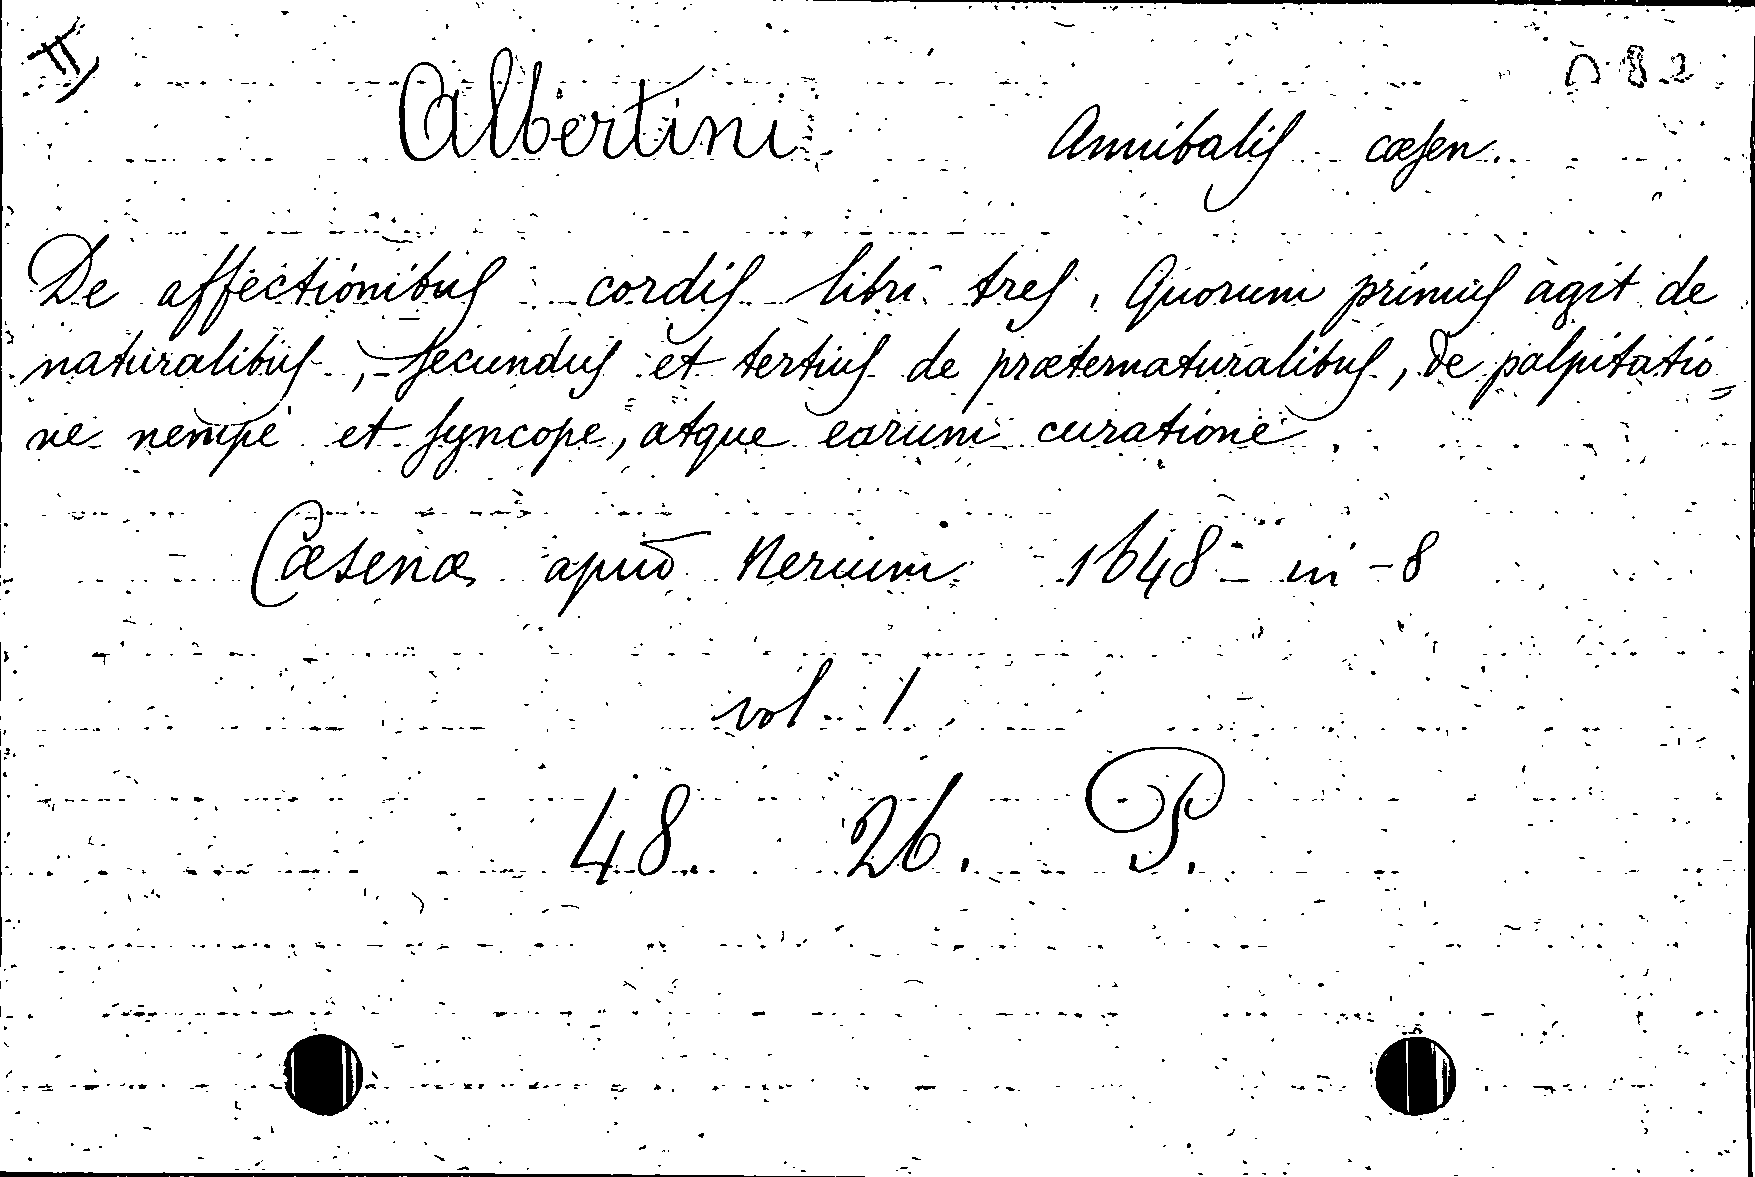 II
Albertini Annibalis cæsen.
De affectionibus cordis libri tres. Quorum primus agit de
naturalibus, secundus et tertius de præternaturalibus, de palpitatio=
ne nempe et syncope, atque earum curatione.
Cæsenæ apud Nerium 1648 - in-8
vol. 1
48. 26. P.